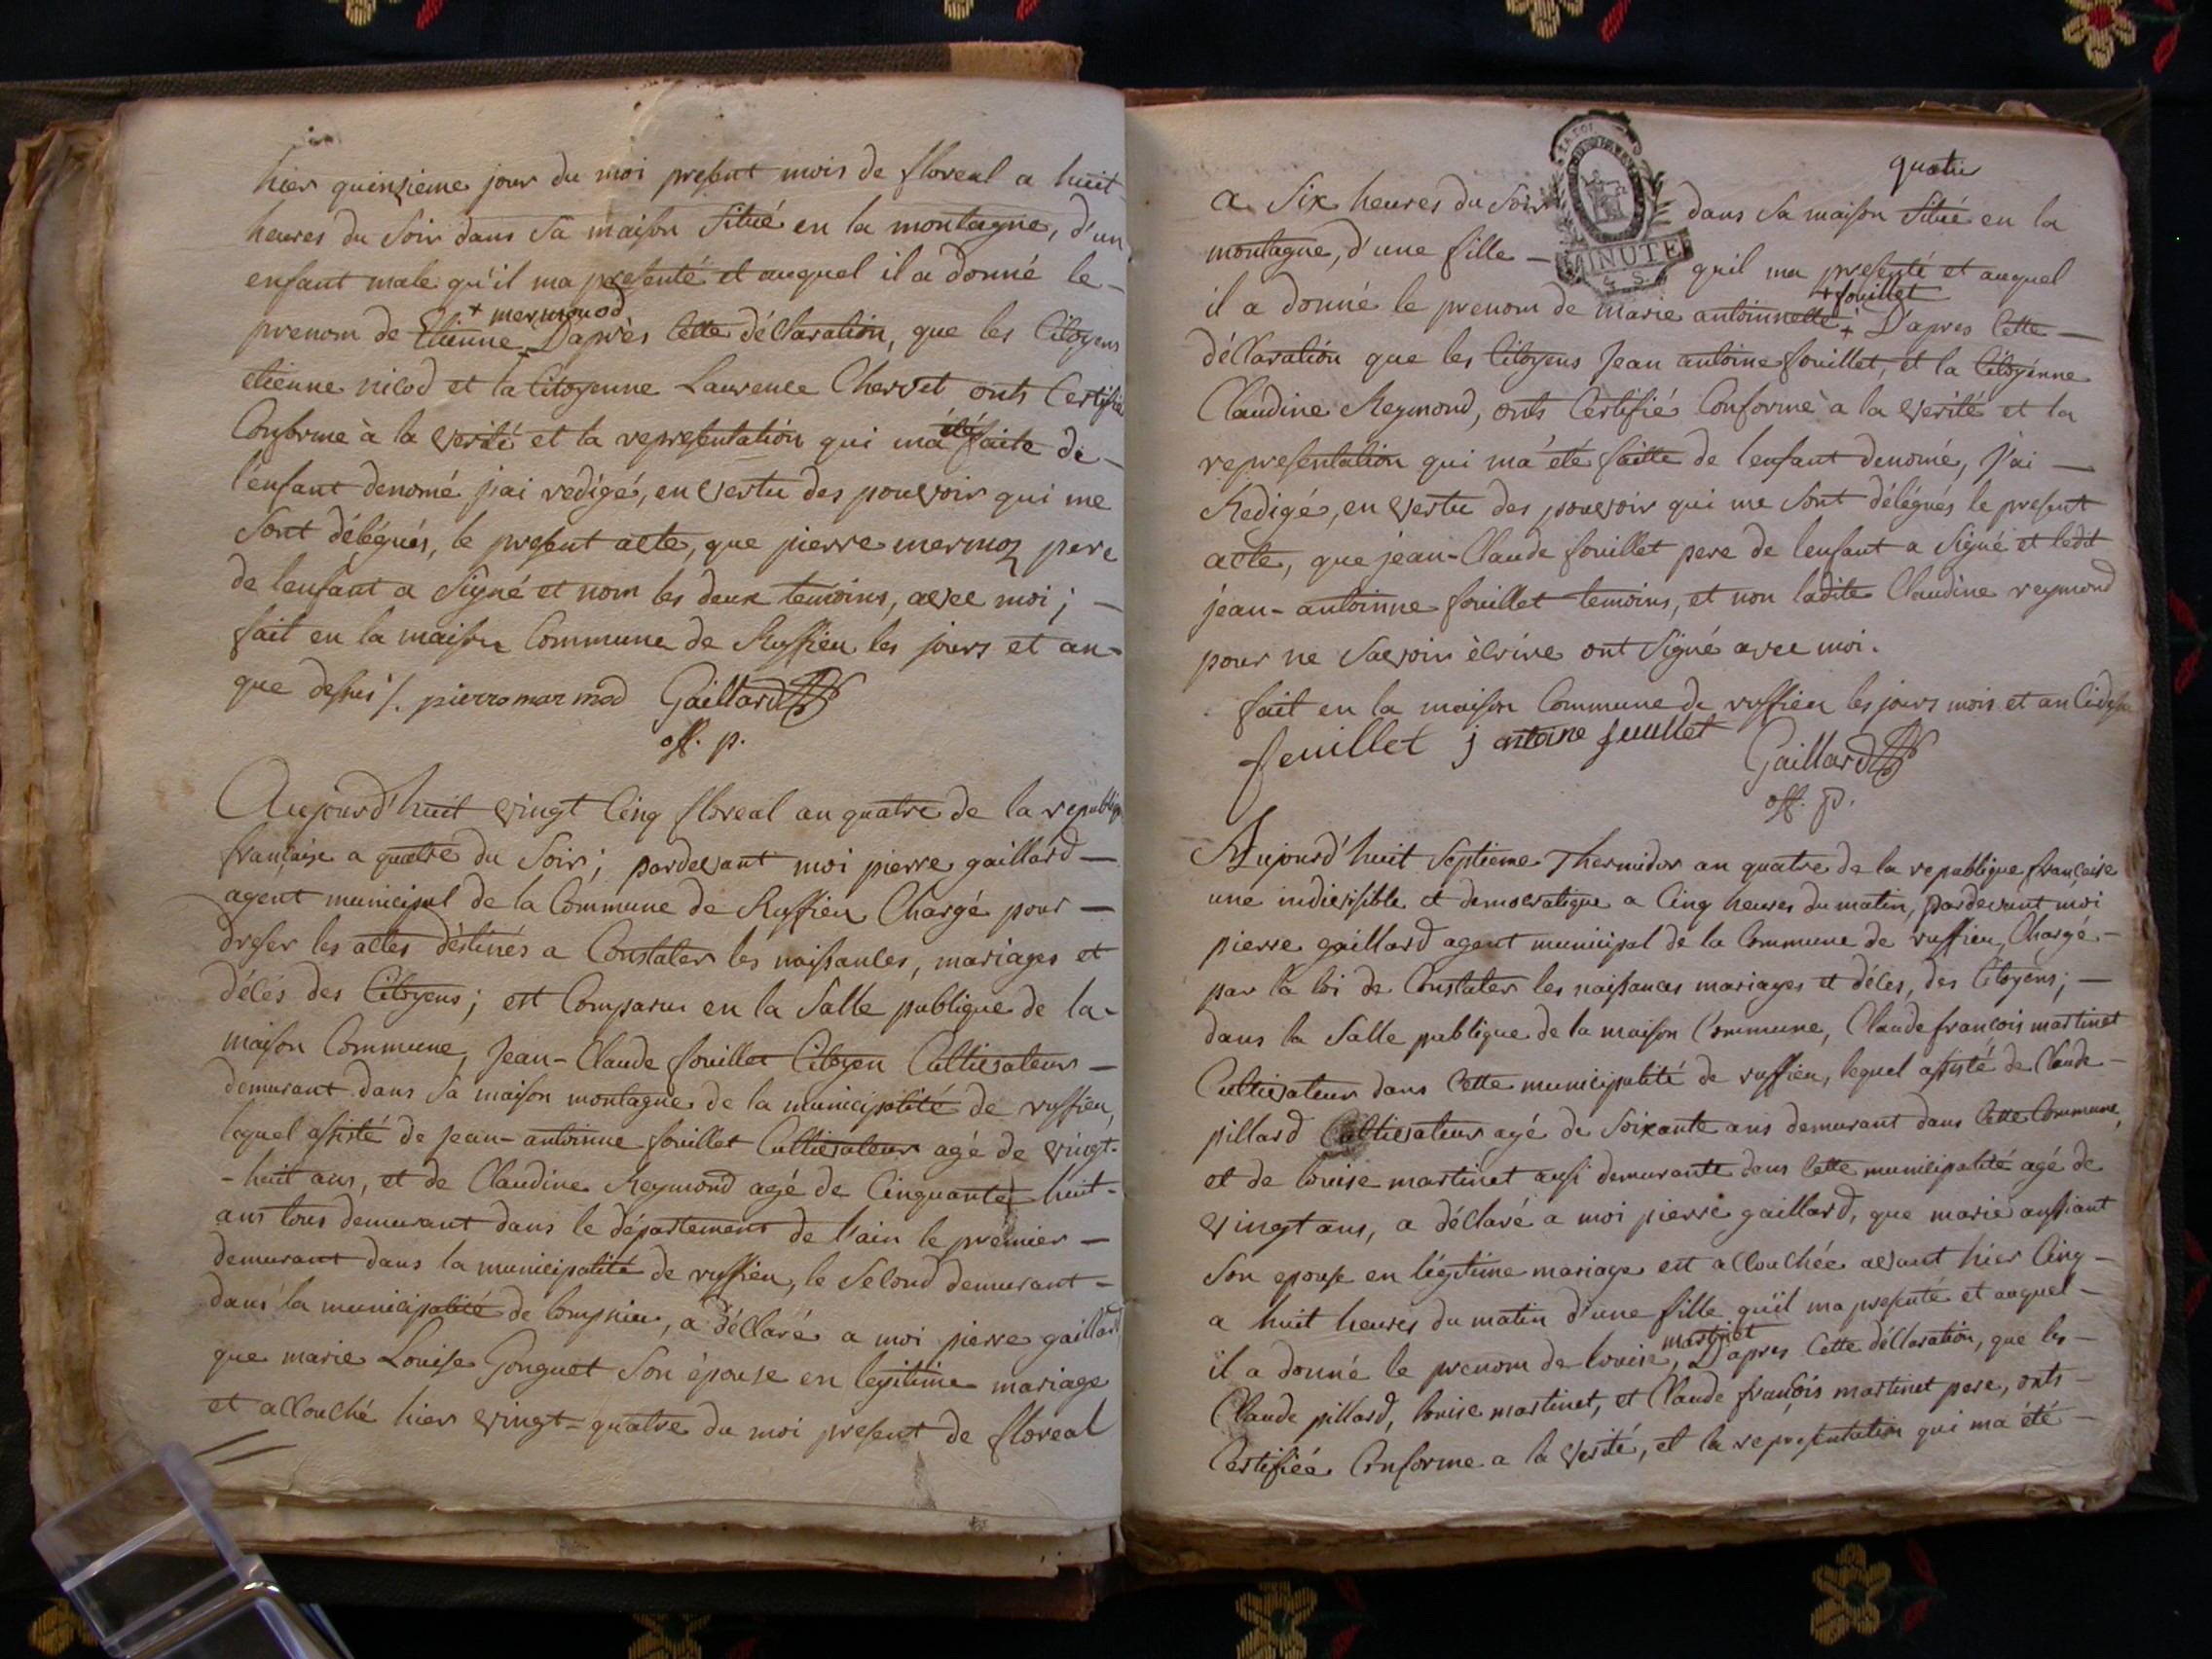 hier quinzieme jour du moi present mois de floreal a huit
heures du soir dans sa maison situé en la montagne, d'un
enfant male qu'il ma presenté et auquel il a donné le -
+ mermod
prenom de Etienne + D'après cette déclaration, que les Citoyens
etienne nicod et la Citoyenne Laurence Chervet onts Certifié
Conforme à la verité et la representation qui m'a été faite de -
l'enfant denomé j'ai redigé, en vertu des pouvoir qui me
sont délégués, le present acte, que pierre mermoz pere
de lenfant a signé et nom les deux temoins, avec moi ; -
fait en la maison Commune de Ruffieu les jours et an -
que dessus /. pierre mar mod Gaillard
off. p.
Aujourd'huit vingt cinq floreal an quatre de la republiq
française a quatre du soir ; pardevant moi pierre gaillard -
agent municipal de la Commune de Ruffieu Chargé pour -
dreser les actes déstinés a Constater les naissances, mariages et
décés des Citoyens ; est Comparu en la Salle publique de la -
maison Commune, Jean-Claude fouillet Citoyen Cultivateur -
demurant dans sa maison montagne de la municipalité de ruffieu,
lequel assisté de Jean-antoinne fouillet Cultivateur agé de vingt -
- huit ans, et de Claudine Reymond agé de Cinquante huit -
ans tous demurant dans le département de l'ain le premier -
demurant dans la municipalité de ruffieu, le Second demurant -
dans la municipalité de Sompnieu, a déclaré a moi pierre gaillard
que marie Louise Gonguet Son épouse en legitime mariage
et accouché hier vingt-quatre du moi présent de floreal
quatre
a Six heures du Soir dans sa maison situé en la
MINUTE
montagne, d'une fille - quil ma presenté et auquel
+ fouillet
il a donné le prenom de marie antoinnette + D'apres Cette -
déclaration que les Citoyens Jean antoine fouillet, et la Citoyénne
Claudine Reymond, onts Certifié Conforme à la verité et la
representation qui m'a été faitte de lenfant denomé, j'ai -
Redigé, en vertu des pouvoir qui me sont délégués le present
acte, que jean-Claude fouillet pere de lenfant a signé et ledit
jean-antoinne fouillet temoins, et non ladite Claudine reymond
pour ne savoir ècrire ont signé avec moi.
fait en la maison Commune de ruffieu les jours mois et an Cidessu
feuillet j antoine feuillet Gaillard
off. p.
Aujourd'huit Septieme Thermidor an quatre de la republique française
une indivisible et democratique a Cinq heures du matin, pardevant moi
pierre gaillard agent municipal de la Commune de ruffieu, Chargé -
par la loi de Constater les naissances mariages et décés, des Citoyens ; -
dans la Salle publique de la maison Commune, Claude françois martinet
Cultivateur dans Cette municipalité de ruffieu, lequel assisté de Claude -
pillard Cultivateur agé de Soixante ans demurant dans Cette Commune,
et de louise martinet ausi demurante dans Cette municipalité agé de
vingt ans, a déclaré a moi pierre gaillard, que marie aussiant
Son epouse en légitime mariage est accouchée avant hier Cinq -
a huit heures du matin d'une fille qu'il ma presenté et auquel -
martinet
il a donné le prenom de louise, D'apres Cette déclaration, que les -
Claude pillard, louise martinet, et Claude françois martinet pere, onts -
Certifiée Conforme a la verité, et la representation qui m'a été -